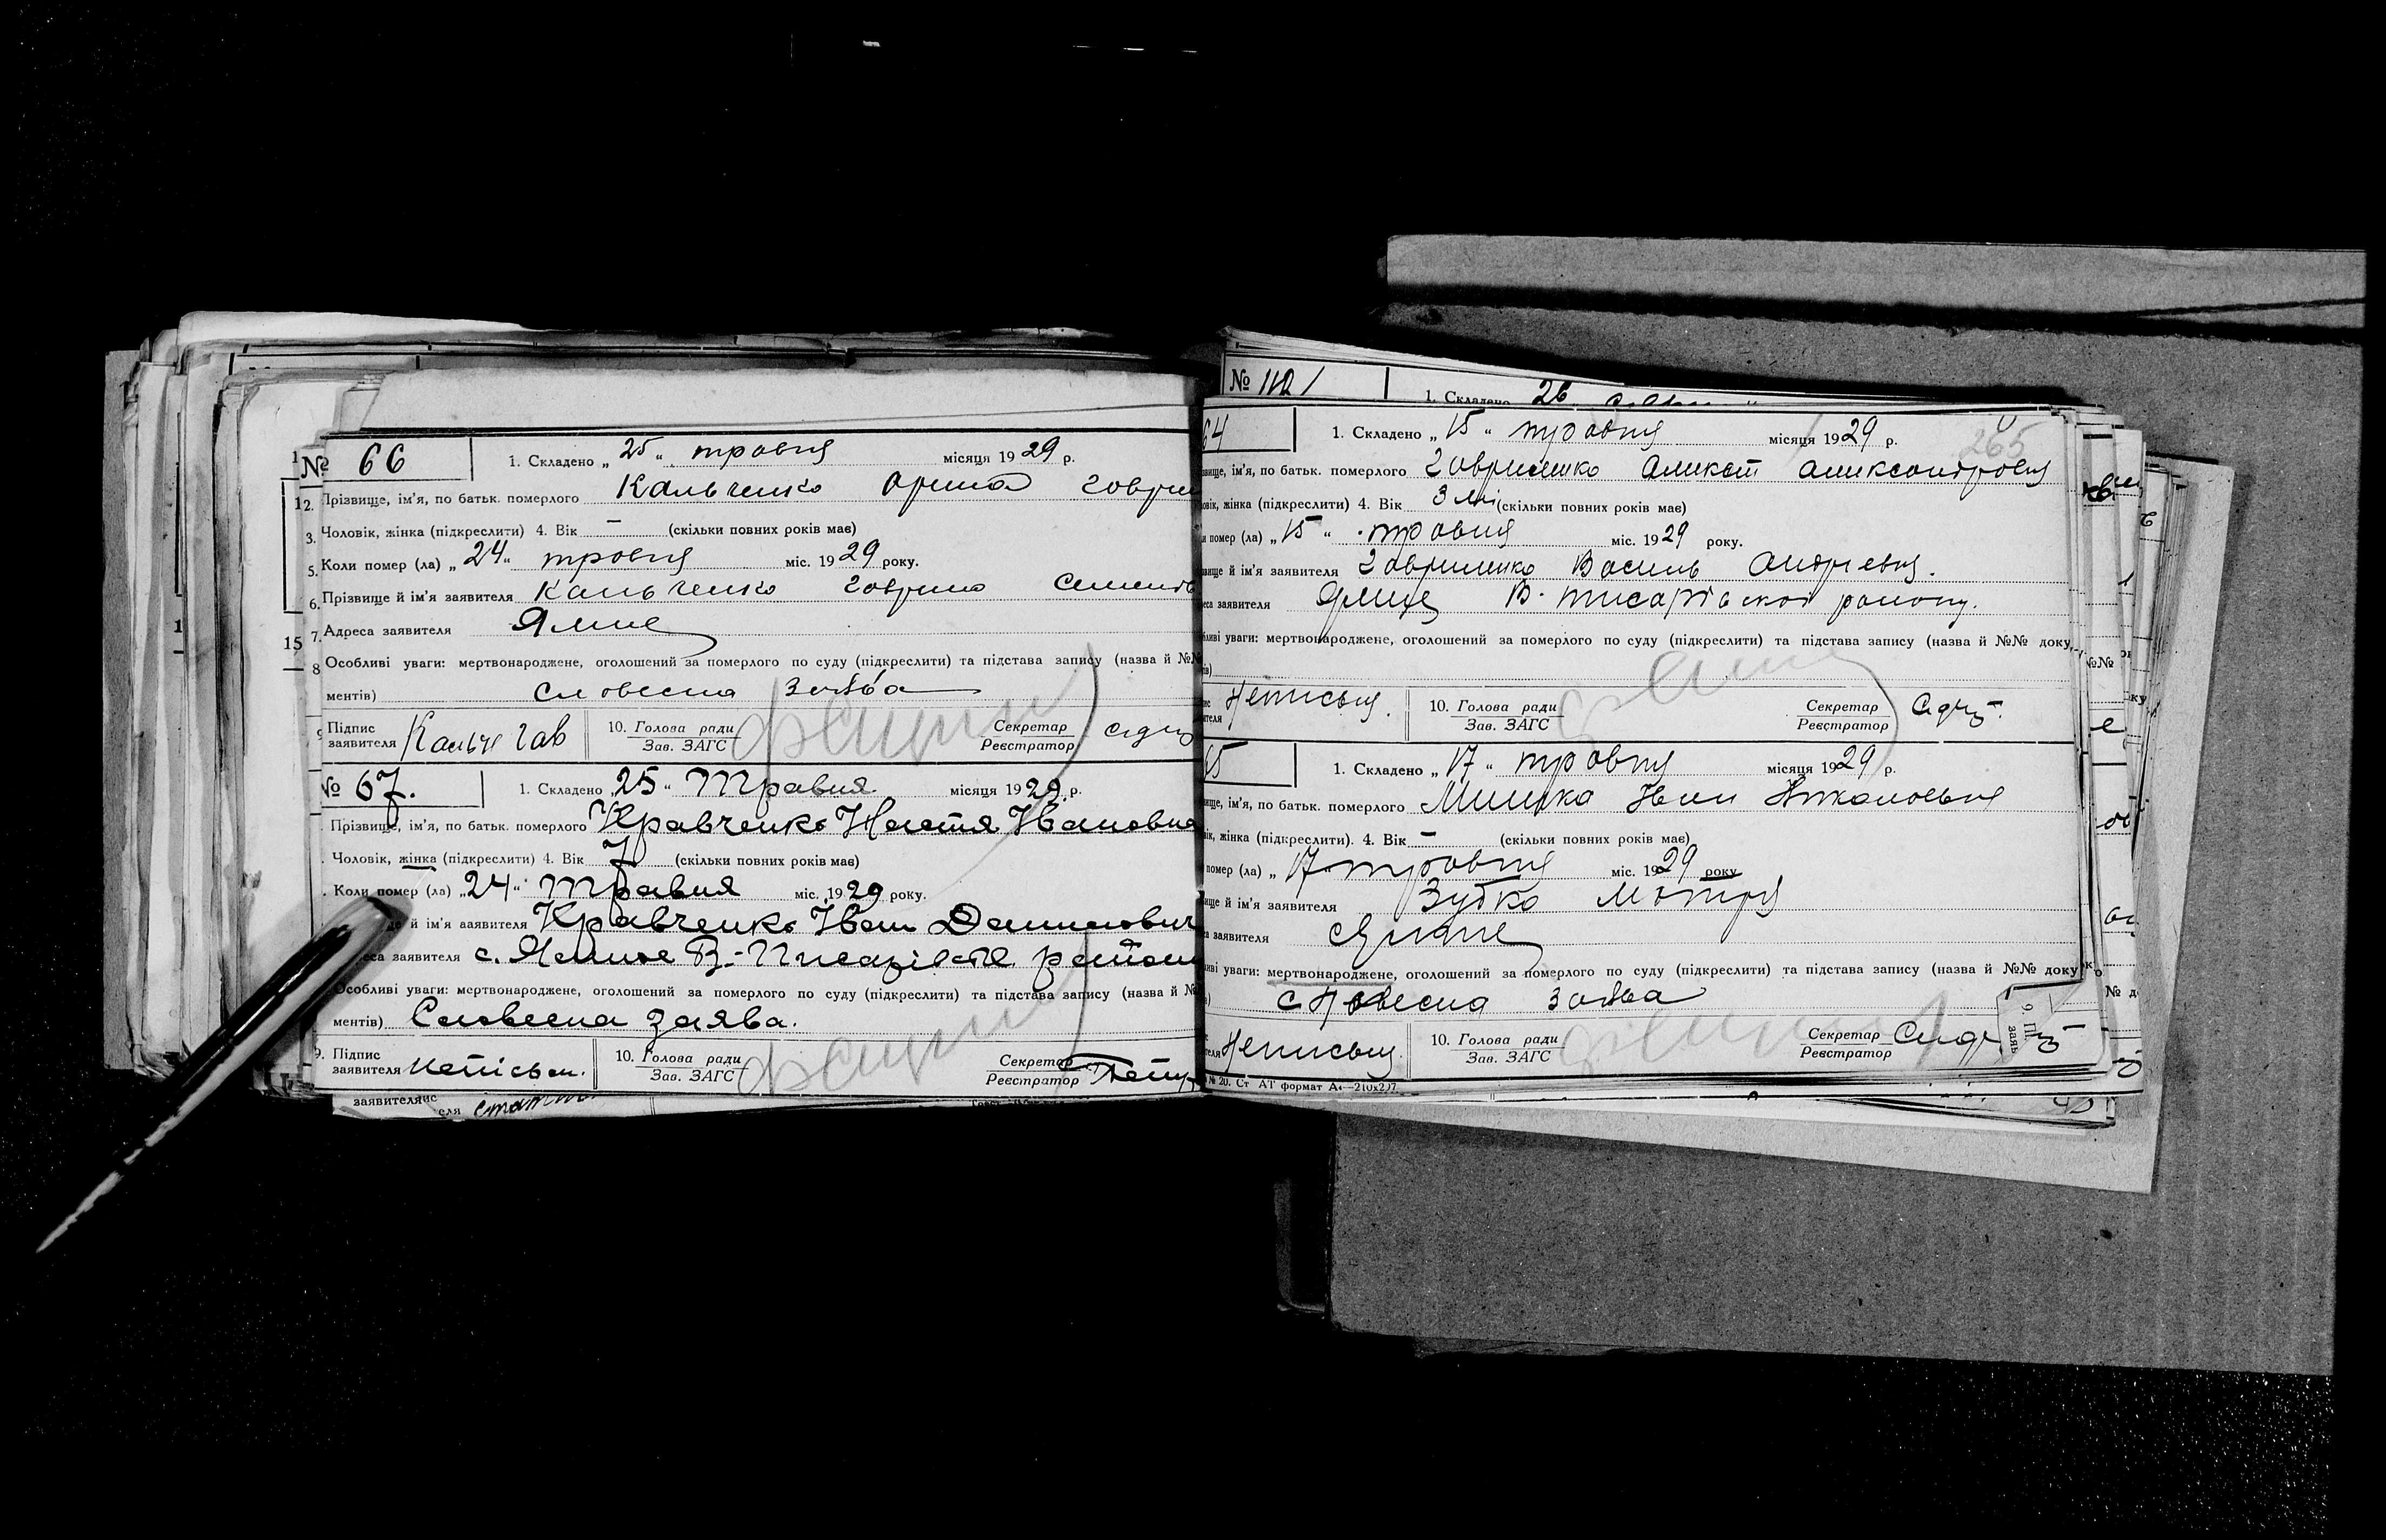 № 66
1. Складено „25“ травня місяця 1929 р.
2. Прізвище, ім'я, по батьк. померлого Кальченко Орина Говри
3. Чоловік, жінка (підкреслити) 4. Вік — (скільки повних років має)
5. Коли помер (ла) „24“ травня міс. 1929 року.
6. Прізвище й ім'я заявителя Кальченко Говрило Семенов
7. Адреса заявителя Ямне
8 Особливі уваги: мертвонароджене, оголошений за померлого по суду (підкреслити) та підстава запису (назва й №№
ментів) словесна заява
Підпис заявителя Кальче Гав
10. Голова ради
Зав. ЗАГС
Секретар
Реєстратор
№ 67.
1. Складено „25“ Травня місяця 1929 р.
Прізвище, ім'я, по батьк. померлого Кравченко Настя Івановна
Чоловік, жінка (підкреслити) 4. Вік 7 (скільки повних років має)
Коли помер (ла) „24“ Травня міс. 1929 року.
й ім'я заявителя Кравченко Іван Данилович
заявителя с. Ямне В.-Писарівськ. району
Особливі уваги: мертвонароджене, оголошений за померлого по суду (підкреслити) та підстава запису (назва й №
ментів) Словесна заява.
9. Підпис заявителя Неписьм.
10. Голова ради
Зав. ЗАГС
Секретар
Реєстратор
№ 112
1. Складено 26
64
1. Складено „15“ травня місяця 1929 р.
265
вище, ім'я, по батьк. померлого Говриленко Олександровна
овік, жінка (підкреслити) 4. Вік 3 міс (скільки повних років має)
и помер (ла) „15“ травня міс. 1929 року.
вище й ім'я заявителя Говриленко Василь Андрієвич.
еса заявителя Ямне В. Писарівської району.
бливі уваги: мертвонароджене, оголошений за померлого по суду (підкреслити) та підстава запису (назва й №№ доку
Неписьм.
10. Голова ради
Зав. ЗАГС
Секретар
Реєстратор
65
1. Складено „17“ травня місяця 1929 р.
вище, ім'я, по батьк. померлого Іван Николаевич
ік, жінка (підкреслити). 4. Вік — (скільки повних років має)
помер (ла) „17“ травня міс. 1929 року
вище й ім'я заявителя Зубко Мотря
а заявителя Ямне
иві уваги: мертвонароджене, оголошений за померлого по суду (підкреслити) та підстава запису (назва й №№ доку
словесна заява
Неписьм.
10. Голова ради
Зав. ЗАГС
Секретар
Реєстратор
№ 20. Ст АТ формат А4—210х297